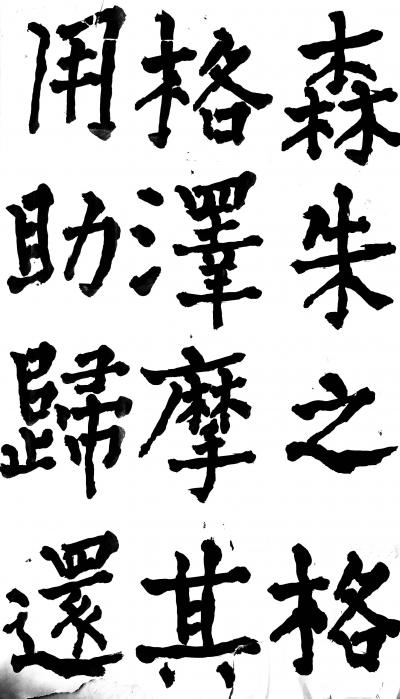 森朱之格
格澤摩其
用助歸還